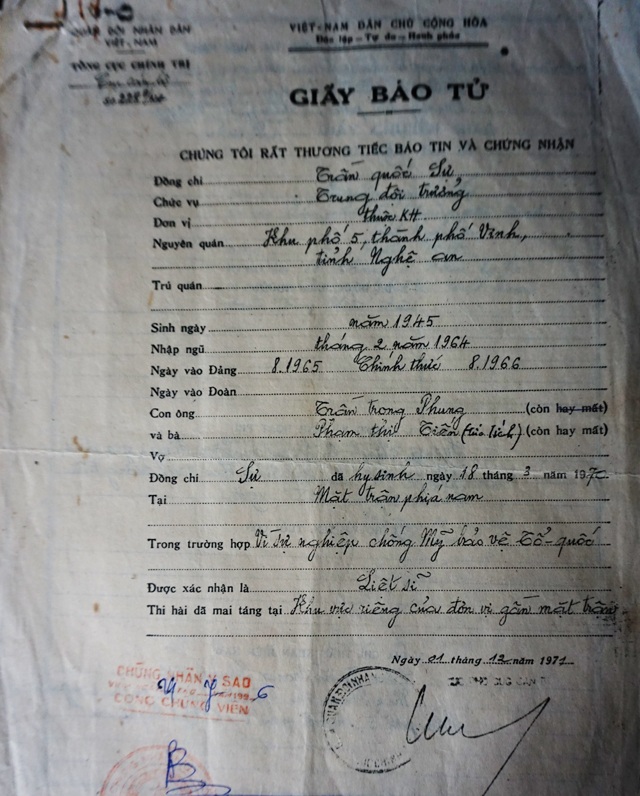 QUÂN ĐỘI NHÂN DÂN
VIỆT-NAM
TỔNG CỤC CHÍNH TRỊ
VIỆT-NAM DÂN CHỦ CỘNG HÒA
Độc lập - Tự do - Hạnh phúc
GIẤY BÁO TỬ
CHÚNG TÔI RẤT THƯƠNG TIẾC BÁO TIN VÀ CHỨNG NHẬN
Đồng chí Trần quốc Sự
Chức vụ Trung đội trưởng
Đơn vị thuộc KH
Nguyên quán Khu phố 5, thành phố Vinh,
tỉnh Nghệ an
Trú quán
Sinh ngày năm 1945
Nhập ngũ tháng 2 năm 1964
Ngày vào Đảng 8.1965 Chính thức 8.1966
Ngày vào Đoàn
Con ông Trần trọng Phung (còn hay mất)
và bà Phạm thị Tiến (còn hay mất)
Vợ
Đồng chí Sự đã hy sinh ngày 18 tháng 3 năm 1970
Tại Mặt trận phía nam
Trong trường hợp Vì sự nghiệp chống Mỹ bảo vệ Tổ-quốc
Được xác nhận là Liệt sĩ
Thi hài đã mai táng tại Khu vực riêng của đơn vị gần mặt trận
Ngày 01 tháng 12 năm 1971
CHỨNG NHẬN SAO
CÔNG CHỨNG VIÊN